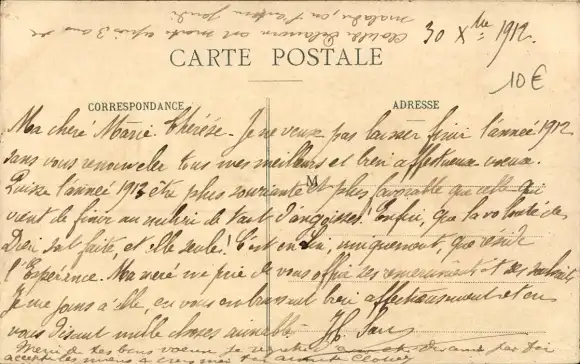 30 Xbre 1912.
CARTE POSTALE
10€
CORRESPONDANCE
ADRESSE
M
Ma chère Marie Thérèse. Je ne veux pas laisser finir l'année 1912
sans vous renouveler tous mes meilleurs et bien affectueux vœux.
Puisse l'année 1913 être plus souriante et plus favorable que celle qui
vient de finir au milieu de tant d'angoisses! Enfin, que la volonté de
Dieu soit faite, et elle seule! C'est en Lui, uniquement, que réside
l'Espérance. Ma mère me prie de vous offrir ses remerciements et ses souhaits
Je me joins à elle, en vous embrassant bien affectueusement et en
vous disant mille choses aimables
Merci de tes bons vœux je